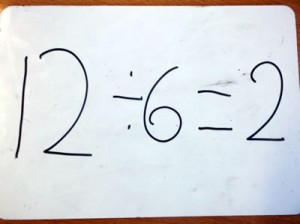 12÷6=2